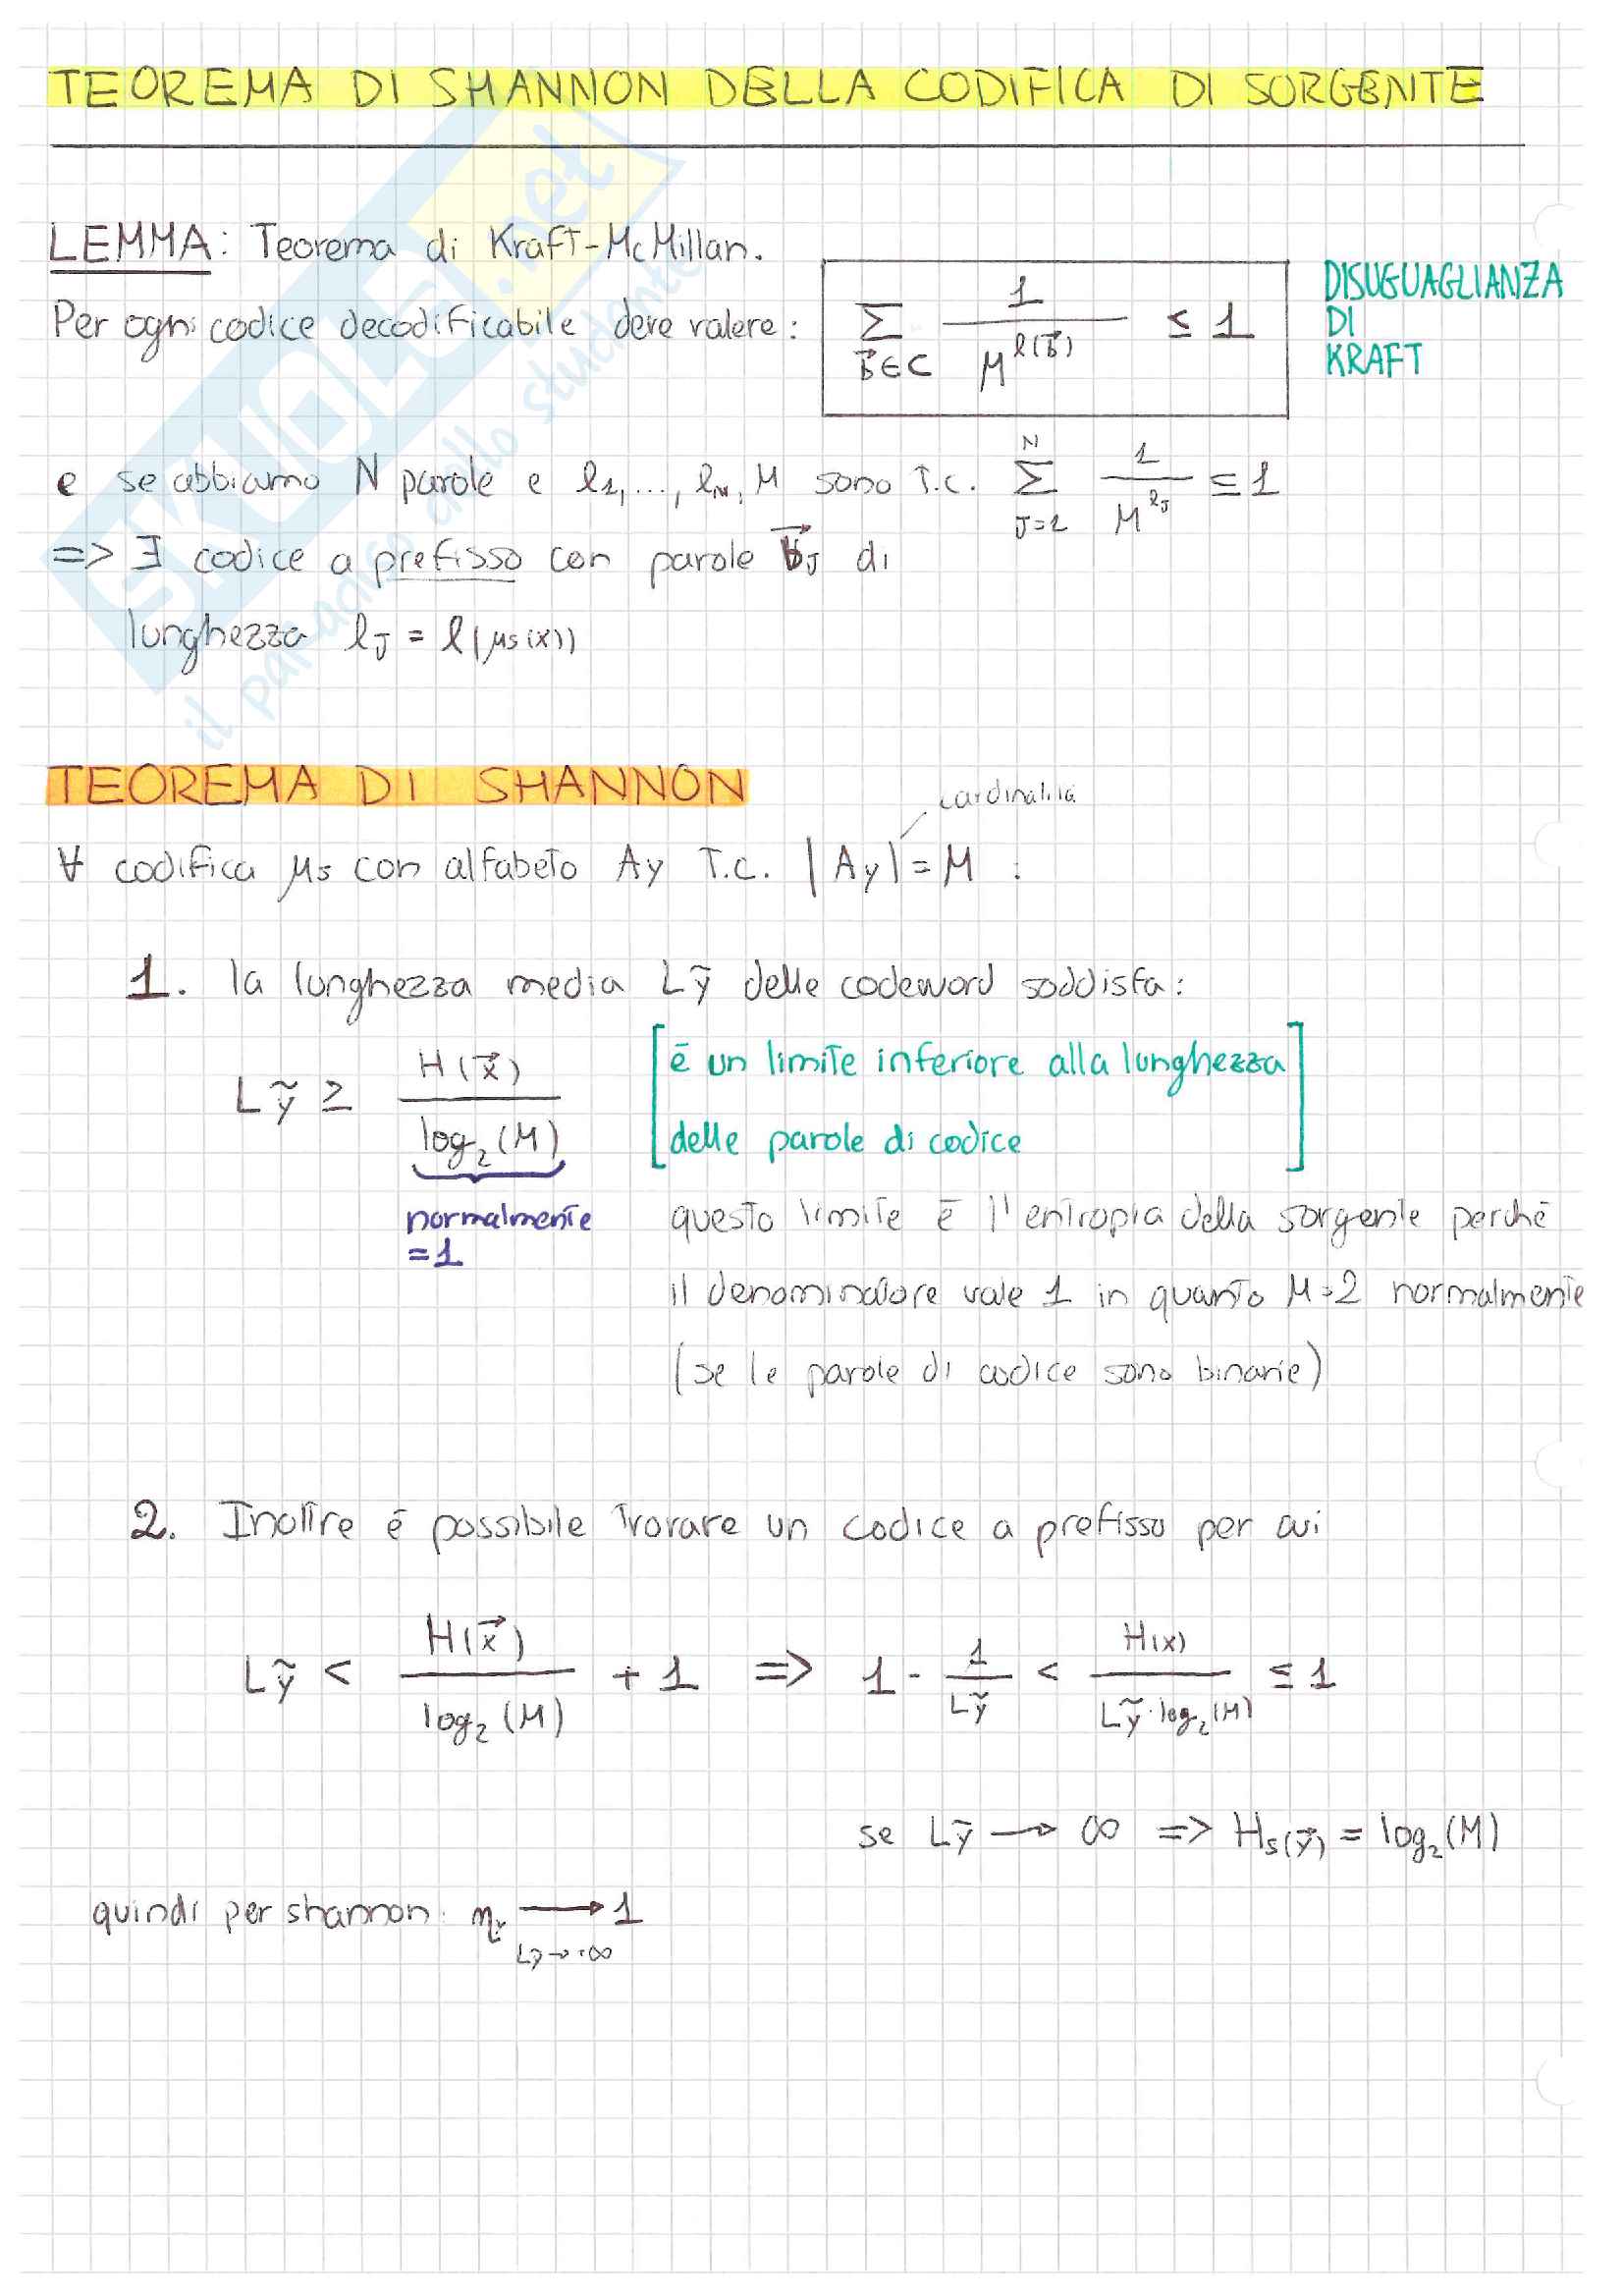 TEOREMA DI SHANNON DELLA CODIFICA DI SORGENTE
LEMMA: Teorema di Kraft-McMillan.
Per ogni codice decodificabile deve valere: Σ_{b⃗∈C} 1/M^{l(b⃗)} ≤ 1
DISUGUAGLIANZA
DI
KRAFT
e se abbiamo N parole e l₁,..., l_N, M sono T.c. Σ_{J=1}^{N} 1/M^{l_J} ≤ 1
=> ∃ codice a prefisso con parole b⃗_J di
lunghezza l_J = l(μs(x))
TEOREMA DI SHANNON
cardinalità
∀ codifica μs con alfabeto Ay T.c. |Ay| = M :
1. la lunghezza media Lỹ delle codeword soddisfa:
Lỹ ≥ H(x⃗) / log₂(M)
[è un limite inferiore alla lunghezza
delle parole di codice]
normalmente
=1
questo limite è l'entropia della sorgente perché
il denominatore vale 1 in quanto M=2 normalmente
(se le parole di codice sono binarie)
2. Inoltre é possibile trovare un codice a prefisso per cui
Lỹ < H(x⃗) / log₂(M) + 1 => 1 - 1/Lỹ < H(x) / Lỹ·log₂(M) ≤ 1
se Lỹ → ∞ => Hs(y⃗) = log₂(M)
quindi per shannon: η_y → 1
Lỹ→∞
SKUOLA.net
il paradiso dello studente